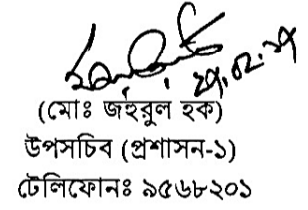 (মোঃ জহুরুল হক)
উপসচিব (প্রশাসন-১)
টেলিফোনঃ ৯৫৬৮২০১